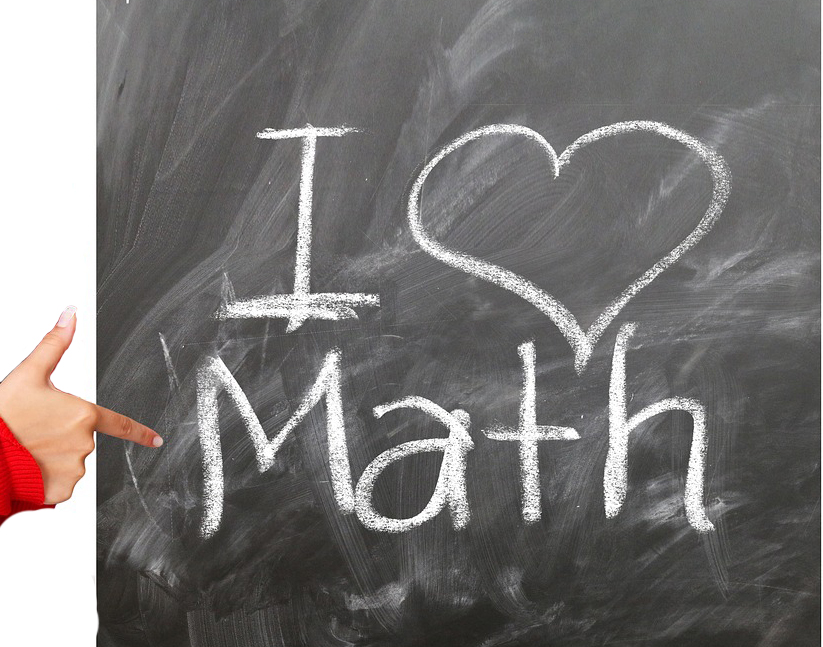 I ♥
Math